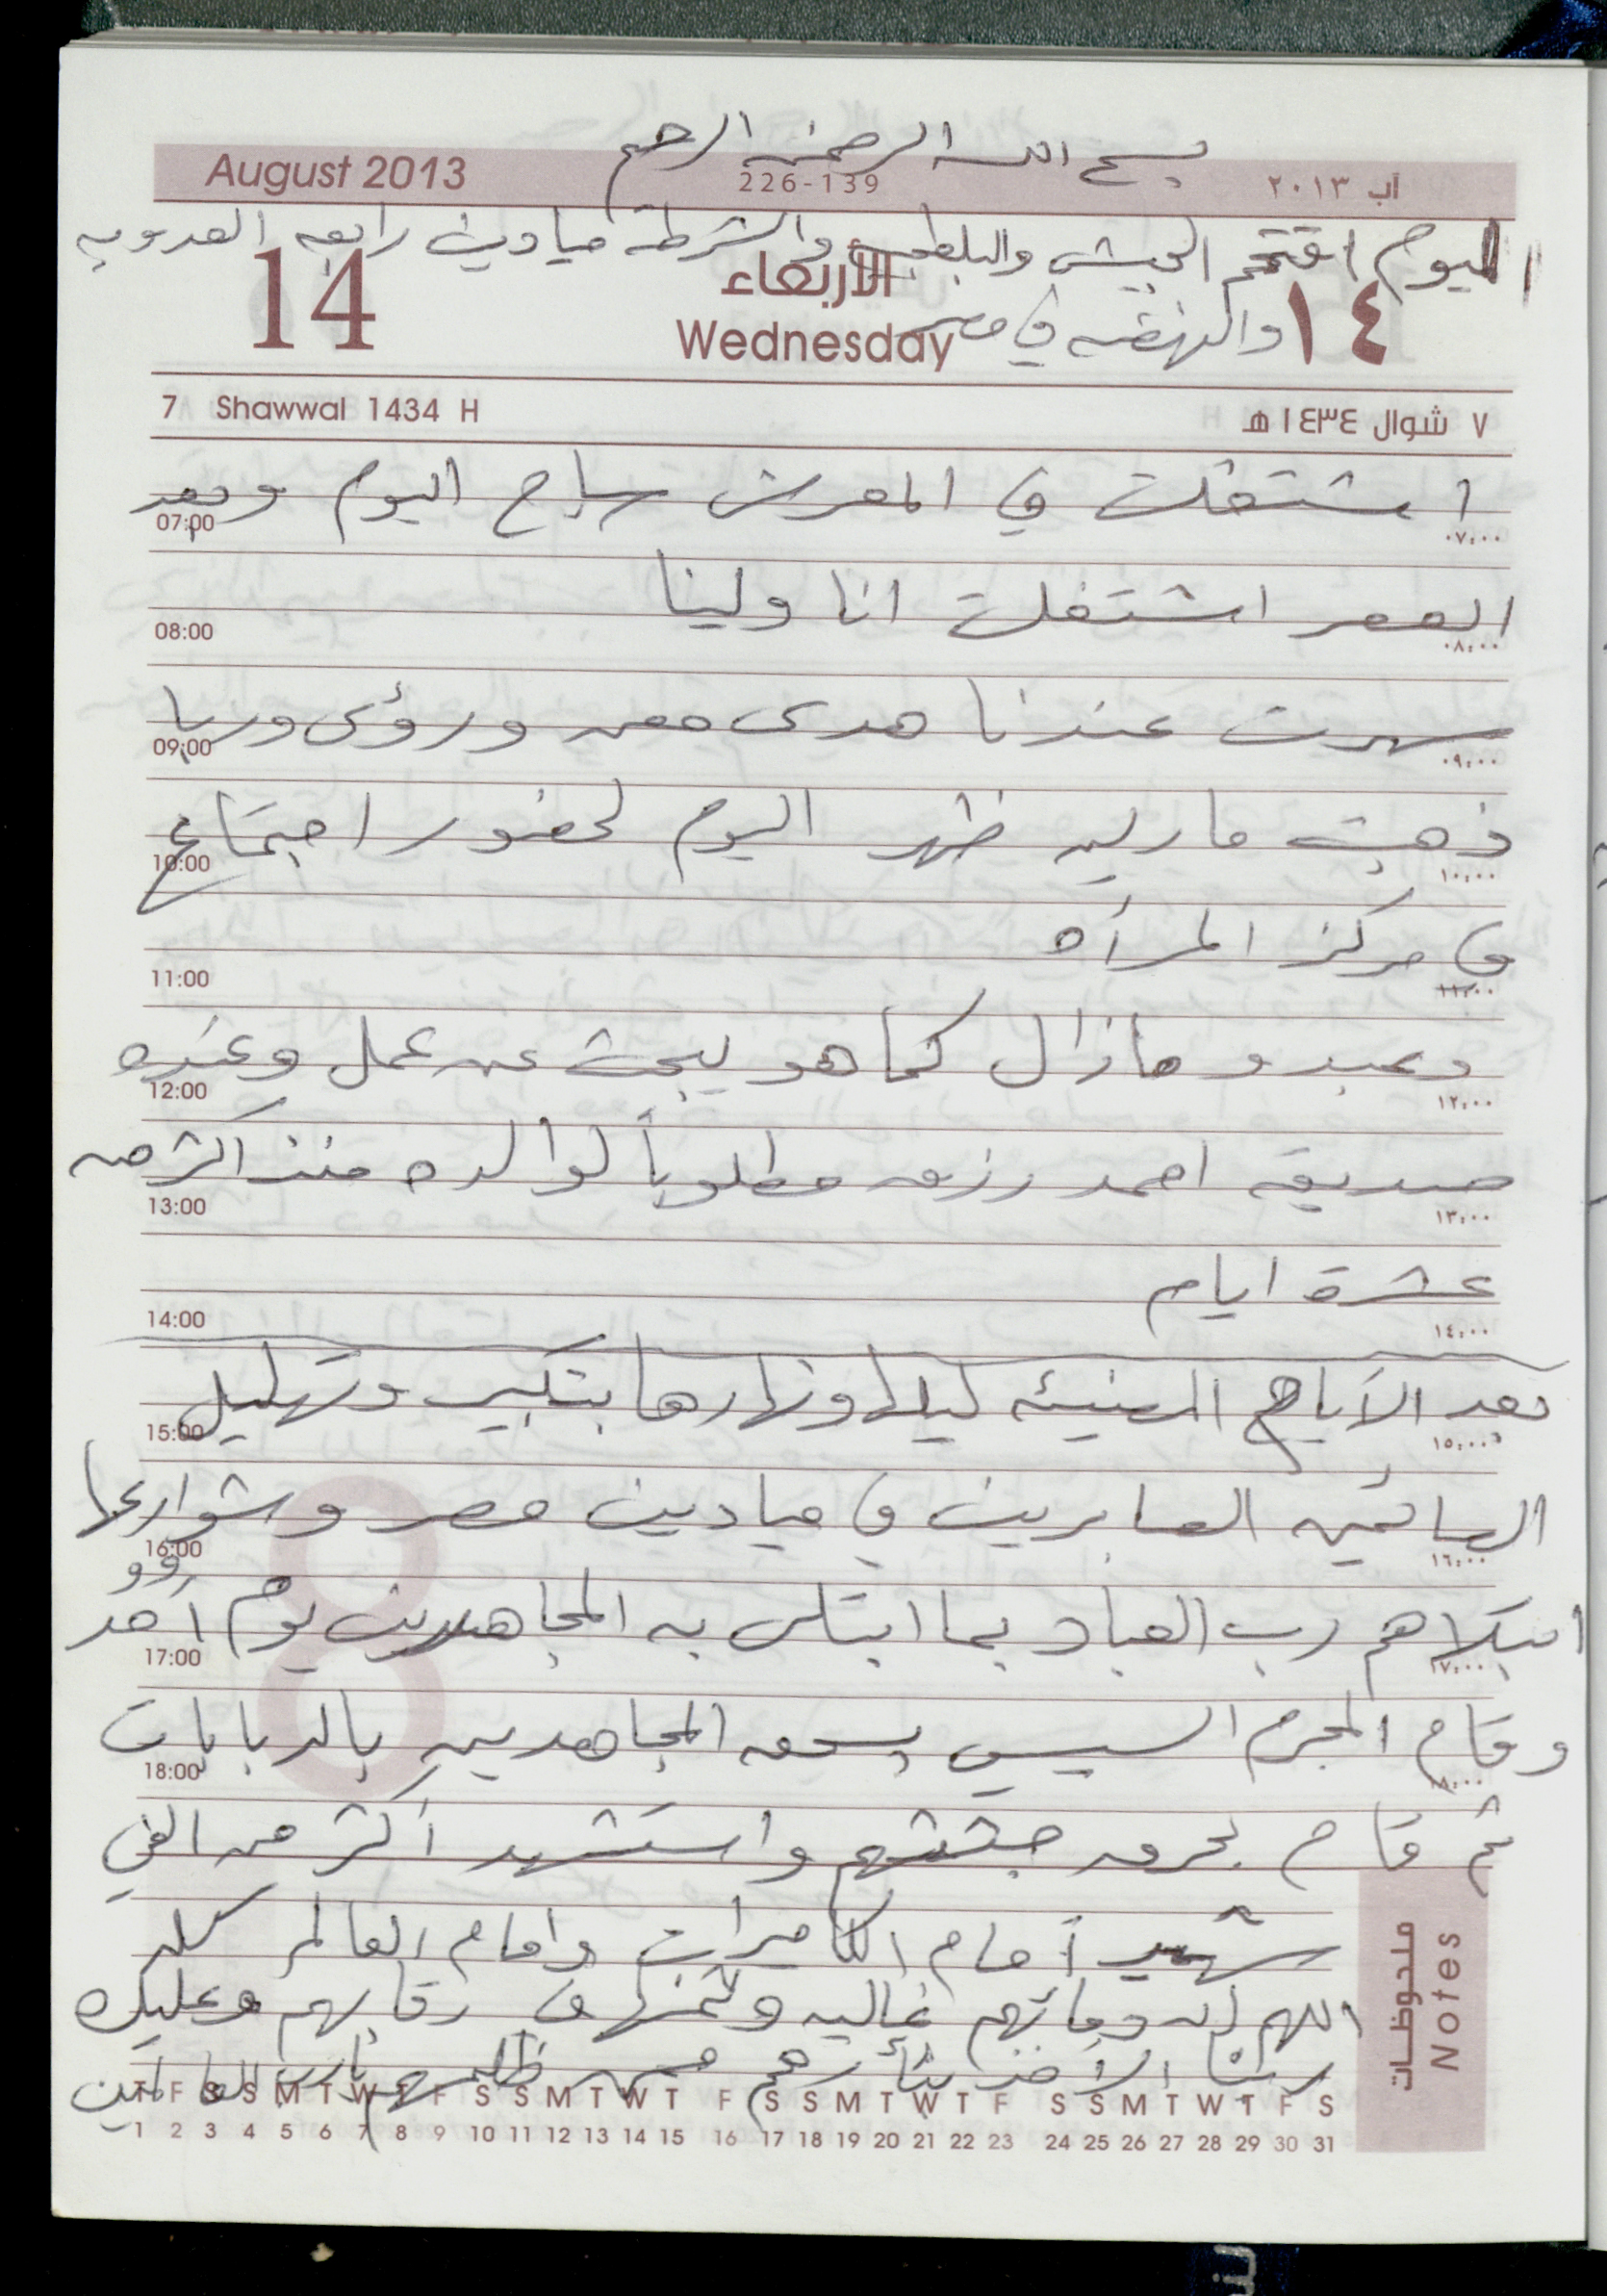 بسم الله الرحمن الرحيم
August 2013 226-139 آب ٢٠١٣
اليوم اقتحم الجيش والبلطجيه والشرطه ميادين رابعه العدويه
14 الأربعاء ١٤
Wednesday والنهضه في مصر
7 Shawwal 1434 H ٧ شوال ١٤٣٤ هـ
اشتغلت في المعرش صباح اليوم وبعد
07:00 ٠٧:٠٠
العصر اشتغلت انا ولينا
08:00 ٠٨:٠٠
سهرت عندنا هدى معن ورؤى وربا
09:00 ٠٩:٠٠
ذهبت ماريه ظهر اليوم لحضور اجتماع
10:00 ١٠:٠٠
في مركز المرأه
11:00 ١١:٠٠
وعبدو مازال كما هو يبحث عن عمل وعنده
12:00 ١٢:٠٠
صديقه احمد رزق مطلوباً لوالده منذ اكثر من
13:00 ١٣:٠٠
عشرة ايام
14:00 ١٤:٠٠
بعد الأيام المضيئه ليلها ونهارها بتكبير وتهليل
15:00 ١٥:٠٠
الصائمين الصابرين في ميادين مصر وشوارعها
16:00 ١٦:٠٠
ابتلاهم رب العباد بما ابتلى به المجاهدين يوم أحد
17:00 ١٧:٠٠
وقام المجرم السيسي بسحق المجاهدين بالدبابات
18:00 ١٨:٠٠
ثم قام بحرق جثثهم واستشهد أكثر من الفي
شهيد أمام الكاميرات وامام العالم كله
اللهم إن دمائهم غاليه وثمنها في رقابهم وعليك
ربنا الاخذ بثأرهم ممن ظلمهم يارب العالمين
ملحوظات Notes
T F S S M T W T F S S M T W T F S S M T W T F S S M T W T F S
1 2 3 4 5 6 7 8 9 10 11 12 13 14 15 16 17 18 19 20 21 22 23 24 25 26 27 28 29 30 31
8